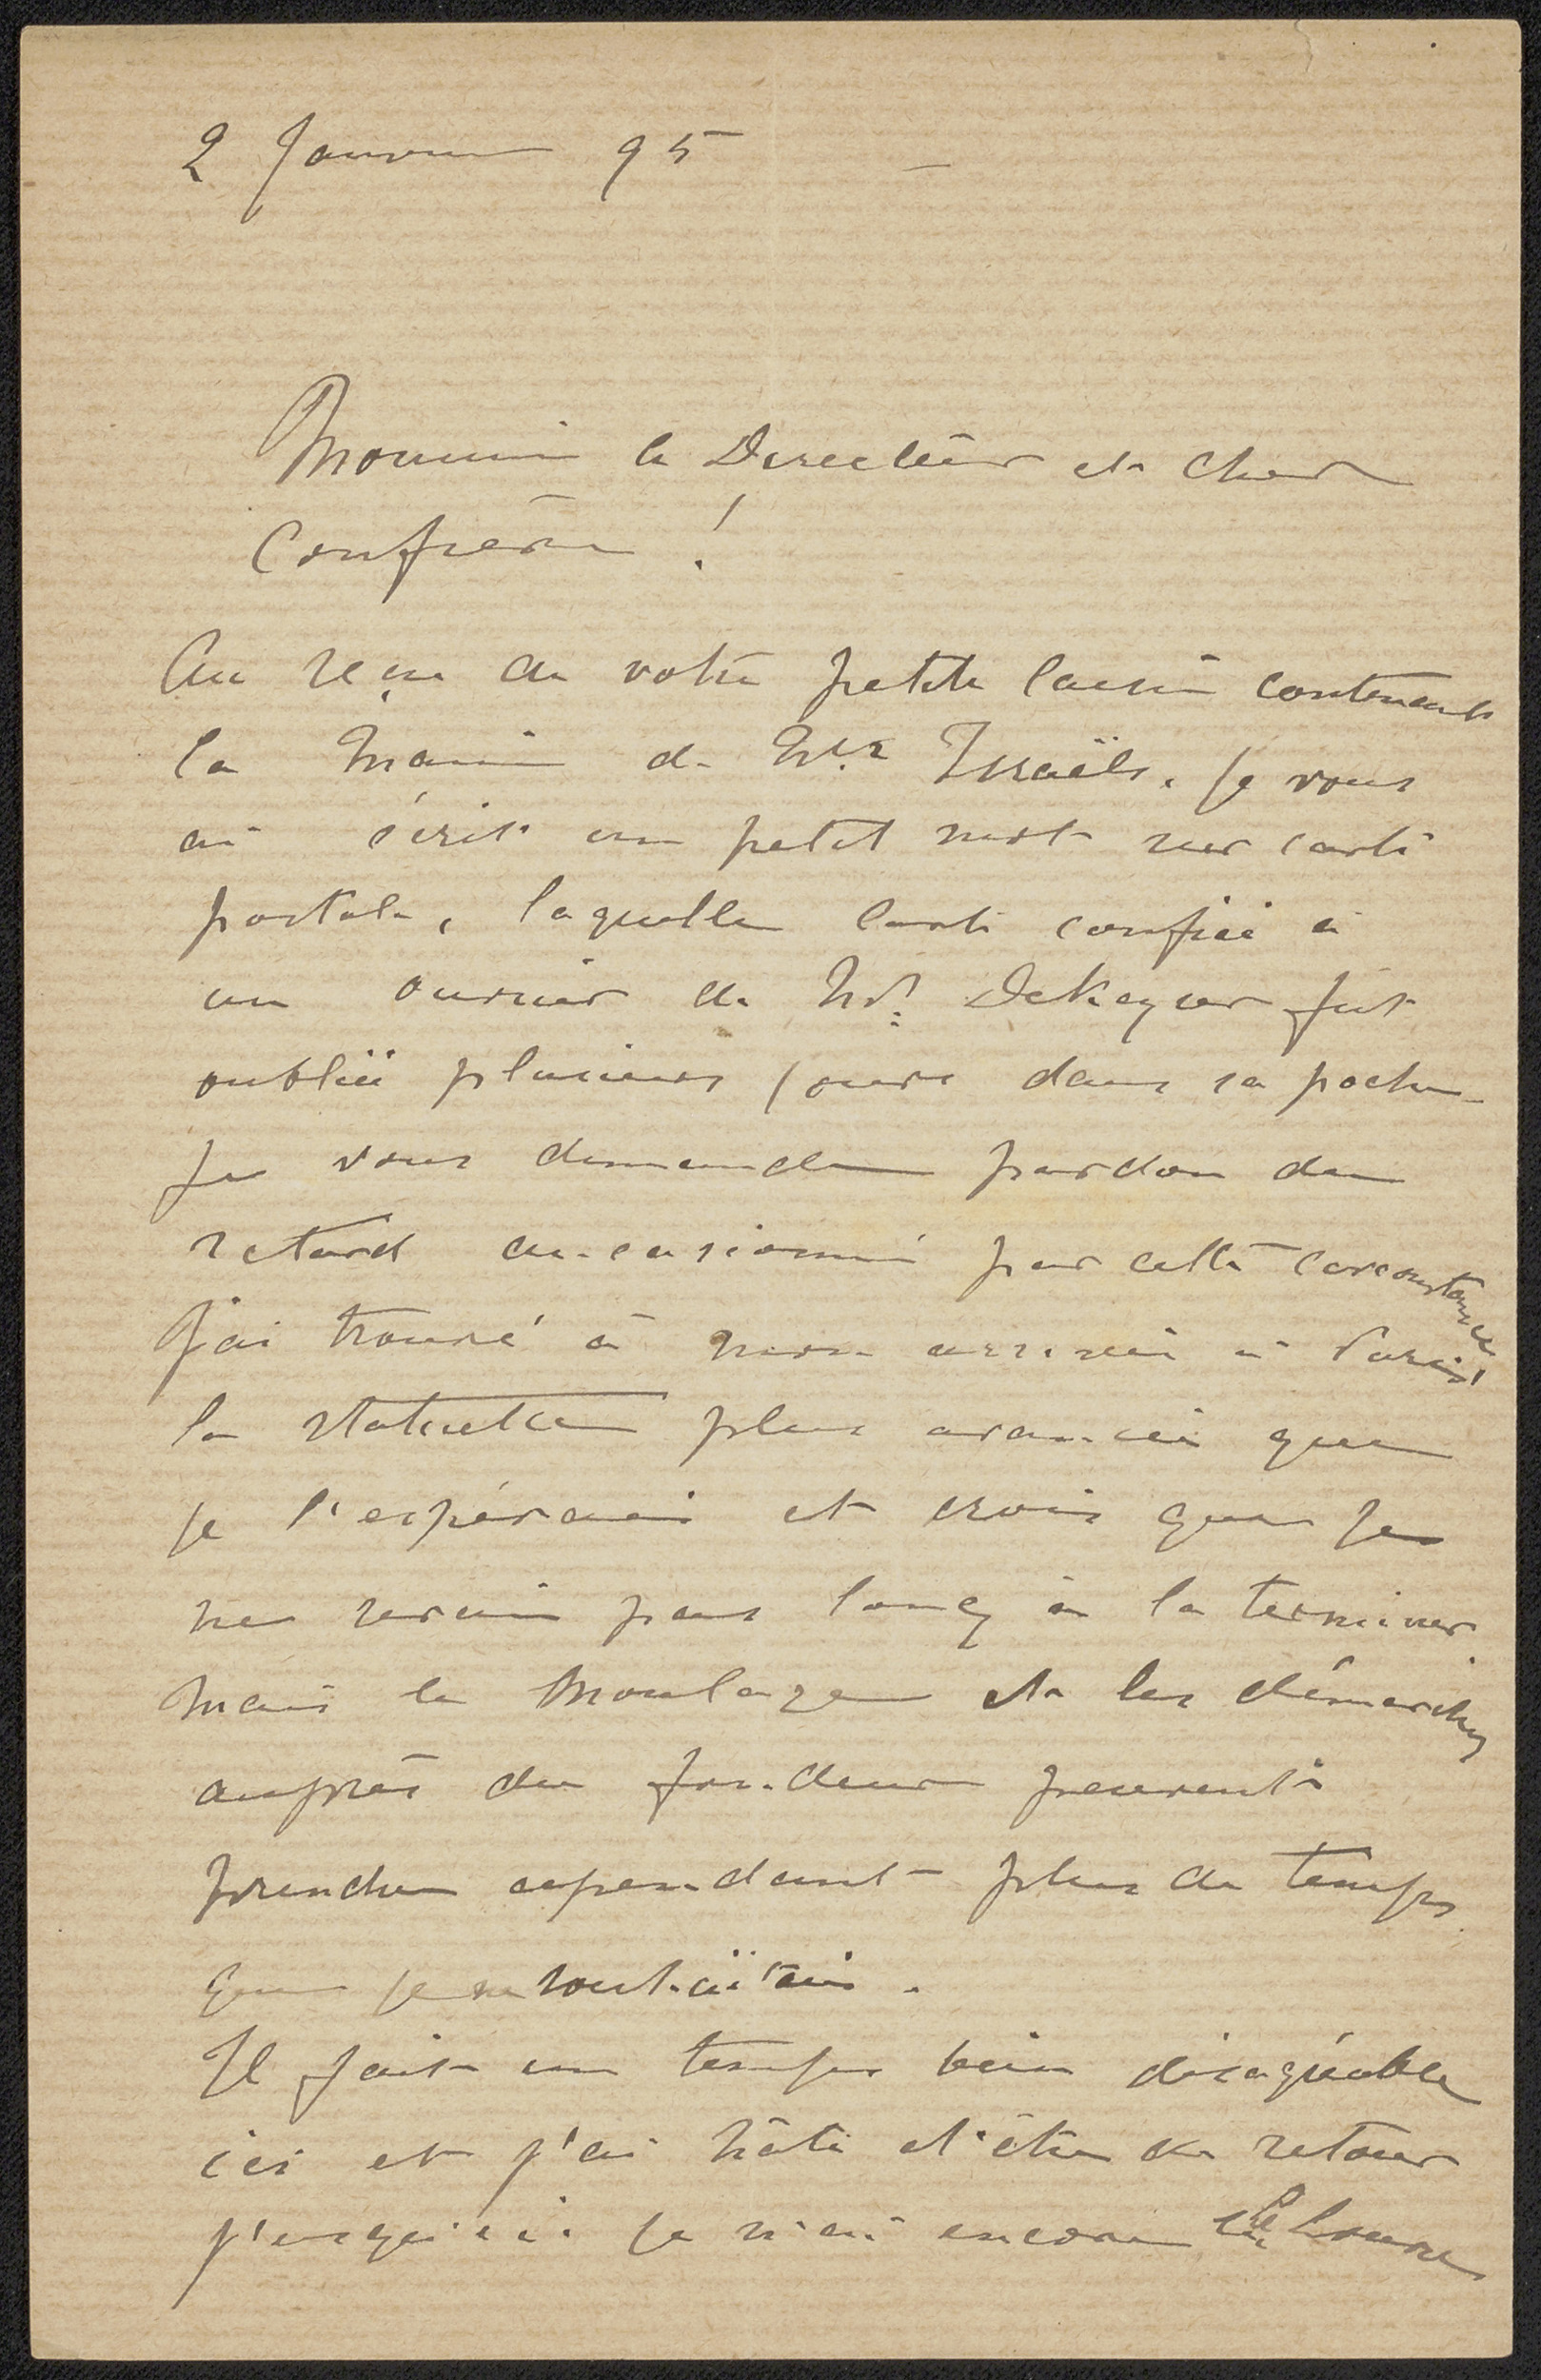 2 Janvier 95
Monsieur le Directeur et cher
Confrère !
Au reçu de votre petite caisse contenant
la main de Mr. Israëls. Je vous
ai écrit un petit mot sur carte
postale, laquelle carte confiée à
un ouvrier de Mr. DeKeyser fut
oubliée plusieurs jours dans sa poche
Je vous demande pardon du
retard occasionné par cette circonstance
J'ai trouvé à mon arrivée à Paris
la statuette plus avancée que
je l'espérais et crois que je
ne serais pas long à la terminer
Mais le Moulage et les démarches
auprès du fondeur peuvent
prendre cependant plus de temps
que je ne souhaitais.
Il fait un temps bien désagréable
ici et j'ai hâte d'être de retour
jusqu'ici je n'ai encore